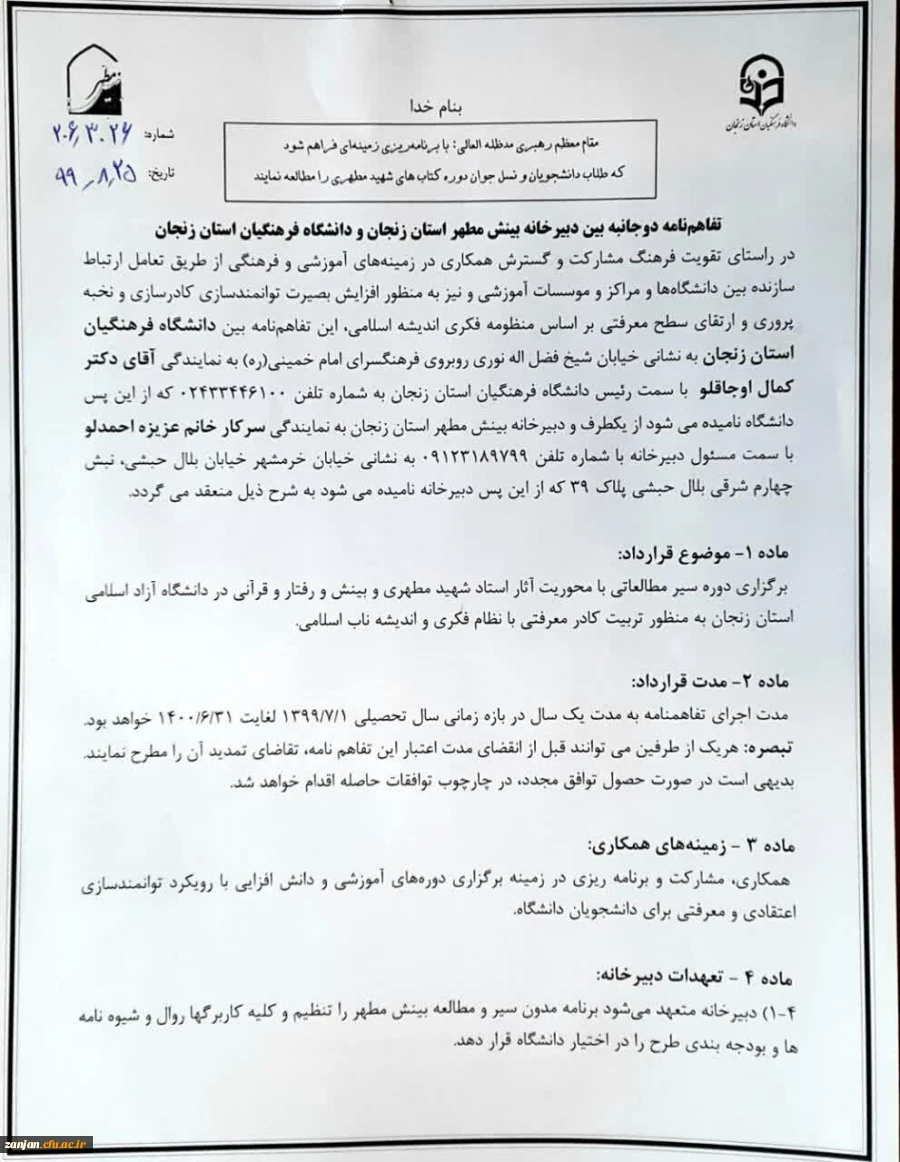 بنام خدا
مطهر
دانشگاه فرهنگیان استان زنجان
شماره: ۲۰۶٫۳۰۲۶
تاریخ: ۹۹٫۸٫۲۵
مقام معظم رهبری مدظله العالی: با برنامه‌ریزی زمینه‌ای فراهم شود
که طلاب دانشجویان و نسل جوان دوره کتاب های شهید مطهری را مطالعه نمایند
تفاهم‌نامه دوجانبه بین دبیرخانه بینش مطهر استان زنجان و دانشگاه فرهنگیان استان زنجان
در راستای تقویت فرهنگ مشارکت و گسترش همکاری در زمینه‌های آموزشی و فرهنگی از طریق تعامل ارتباط
سازنده بین دانشگاه‌ها و مراکز و موسسات آموزشی و نیز به منظور افزایش بصیرت توانمندسازی کادرسازی و نخبه
پروری و ارتقای سطح معرفتی بر اساس منظومه فکری اندیشه اسلامی، این تفاهم‌نامه بین دانشگاه فرهنگیان
استان زنجان به نشانی خیابان شیخ فضل اله نوری روبروی فرهنگسرای امام خمینی(ره) به نمایندگی آقای دکتر
کمال اوجاقلو با سمت رئیس دانشگاه فرهنگیان استان زنجان به شماره تلفن ۰۲۴۳۳۴۴۶۱۰۰ که از این پس
دانشگاه نامیده می شود از یکطرف و دبیرخانه بینش مطهر استان زنجان به نمایندگی سرکار خانم عزیزه احمدلو
با سمت مسئول دبیرخانه با شماره تلفن ۰۹۱۲۳۱۸۹۷۹۹ به نشانی خیابان خرمشهر خیابان بلال حبشی، نبش
چهارم شرقی بلال حبشی پلاک ۳۹ که از این پس دبیرخانه نامیده می شود به شرح ذیل منعقد می گردد.
ماده ۱- موضوع قرارداد:
برگزاری دوره سیر مطالعاتی با محوریت آثار استاد شهید مطهری و بینش و رفتار و قرآنی در دانشگاه آزاد اسلامی
استان زنجان به منظور تربیت کادر معرفتی با نظام فکری و اندیشه ناب اسلامی.
ماده ۲- مدت قرارداد:
مدت اجرای تفاهمنامه به مدت یک سال در بازه زمانی سال تحصیلی ۱۳۹۹/۷/۱ لغایت ۱۴۰۰/۶/۳۱ خواهد بود.
تبصره: هریک از طرفین می توانند قبل از انقضای مدت اعتبار این تفاهم نامه، تقاضای تمدید آن را مطرح نمایند.
بدیهی است در صورت حصول توافق مجدد، در چارچوب توافقات حاصله اقدام خواهد شد.
ماده ۳ - زمینه‌های همکاری:
همکاری، مشارکت و برنامه ریزی در زمینه برگزاری دوره‌های آموزشی و دانش افزایی با رویکرد توانمندسازی
اعتقادی و معرفتی برای دانشجویان دانشگاه.
ماده ۴ - تعهدات دبیرخانه:
۴-۱) دبیرخانه متعهد می‌شود برنامه مدون سیر و مطالعه بینش مطهر را تنظیم و کلیه کاربرگها روال و شیوه نامه
ها و بودجه بندی طرح را در اختیار دانشگاه قرار دهد.
zanjan.cfu.ac.ir